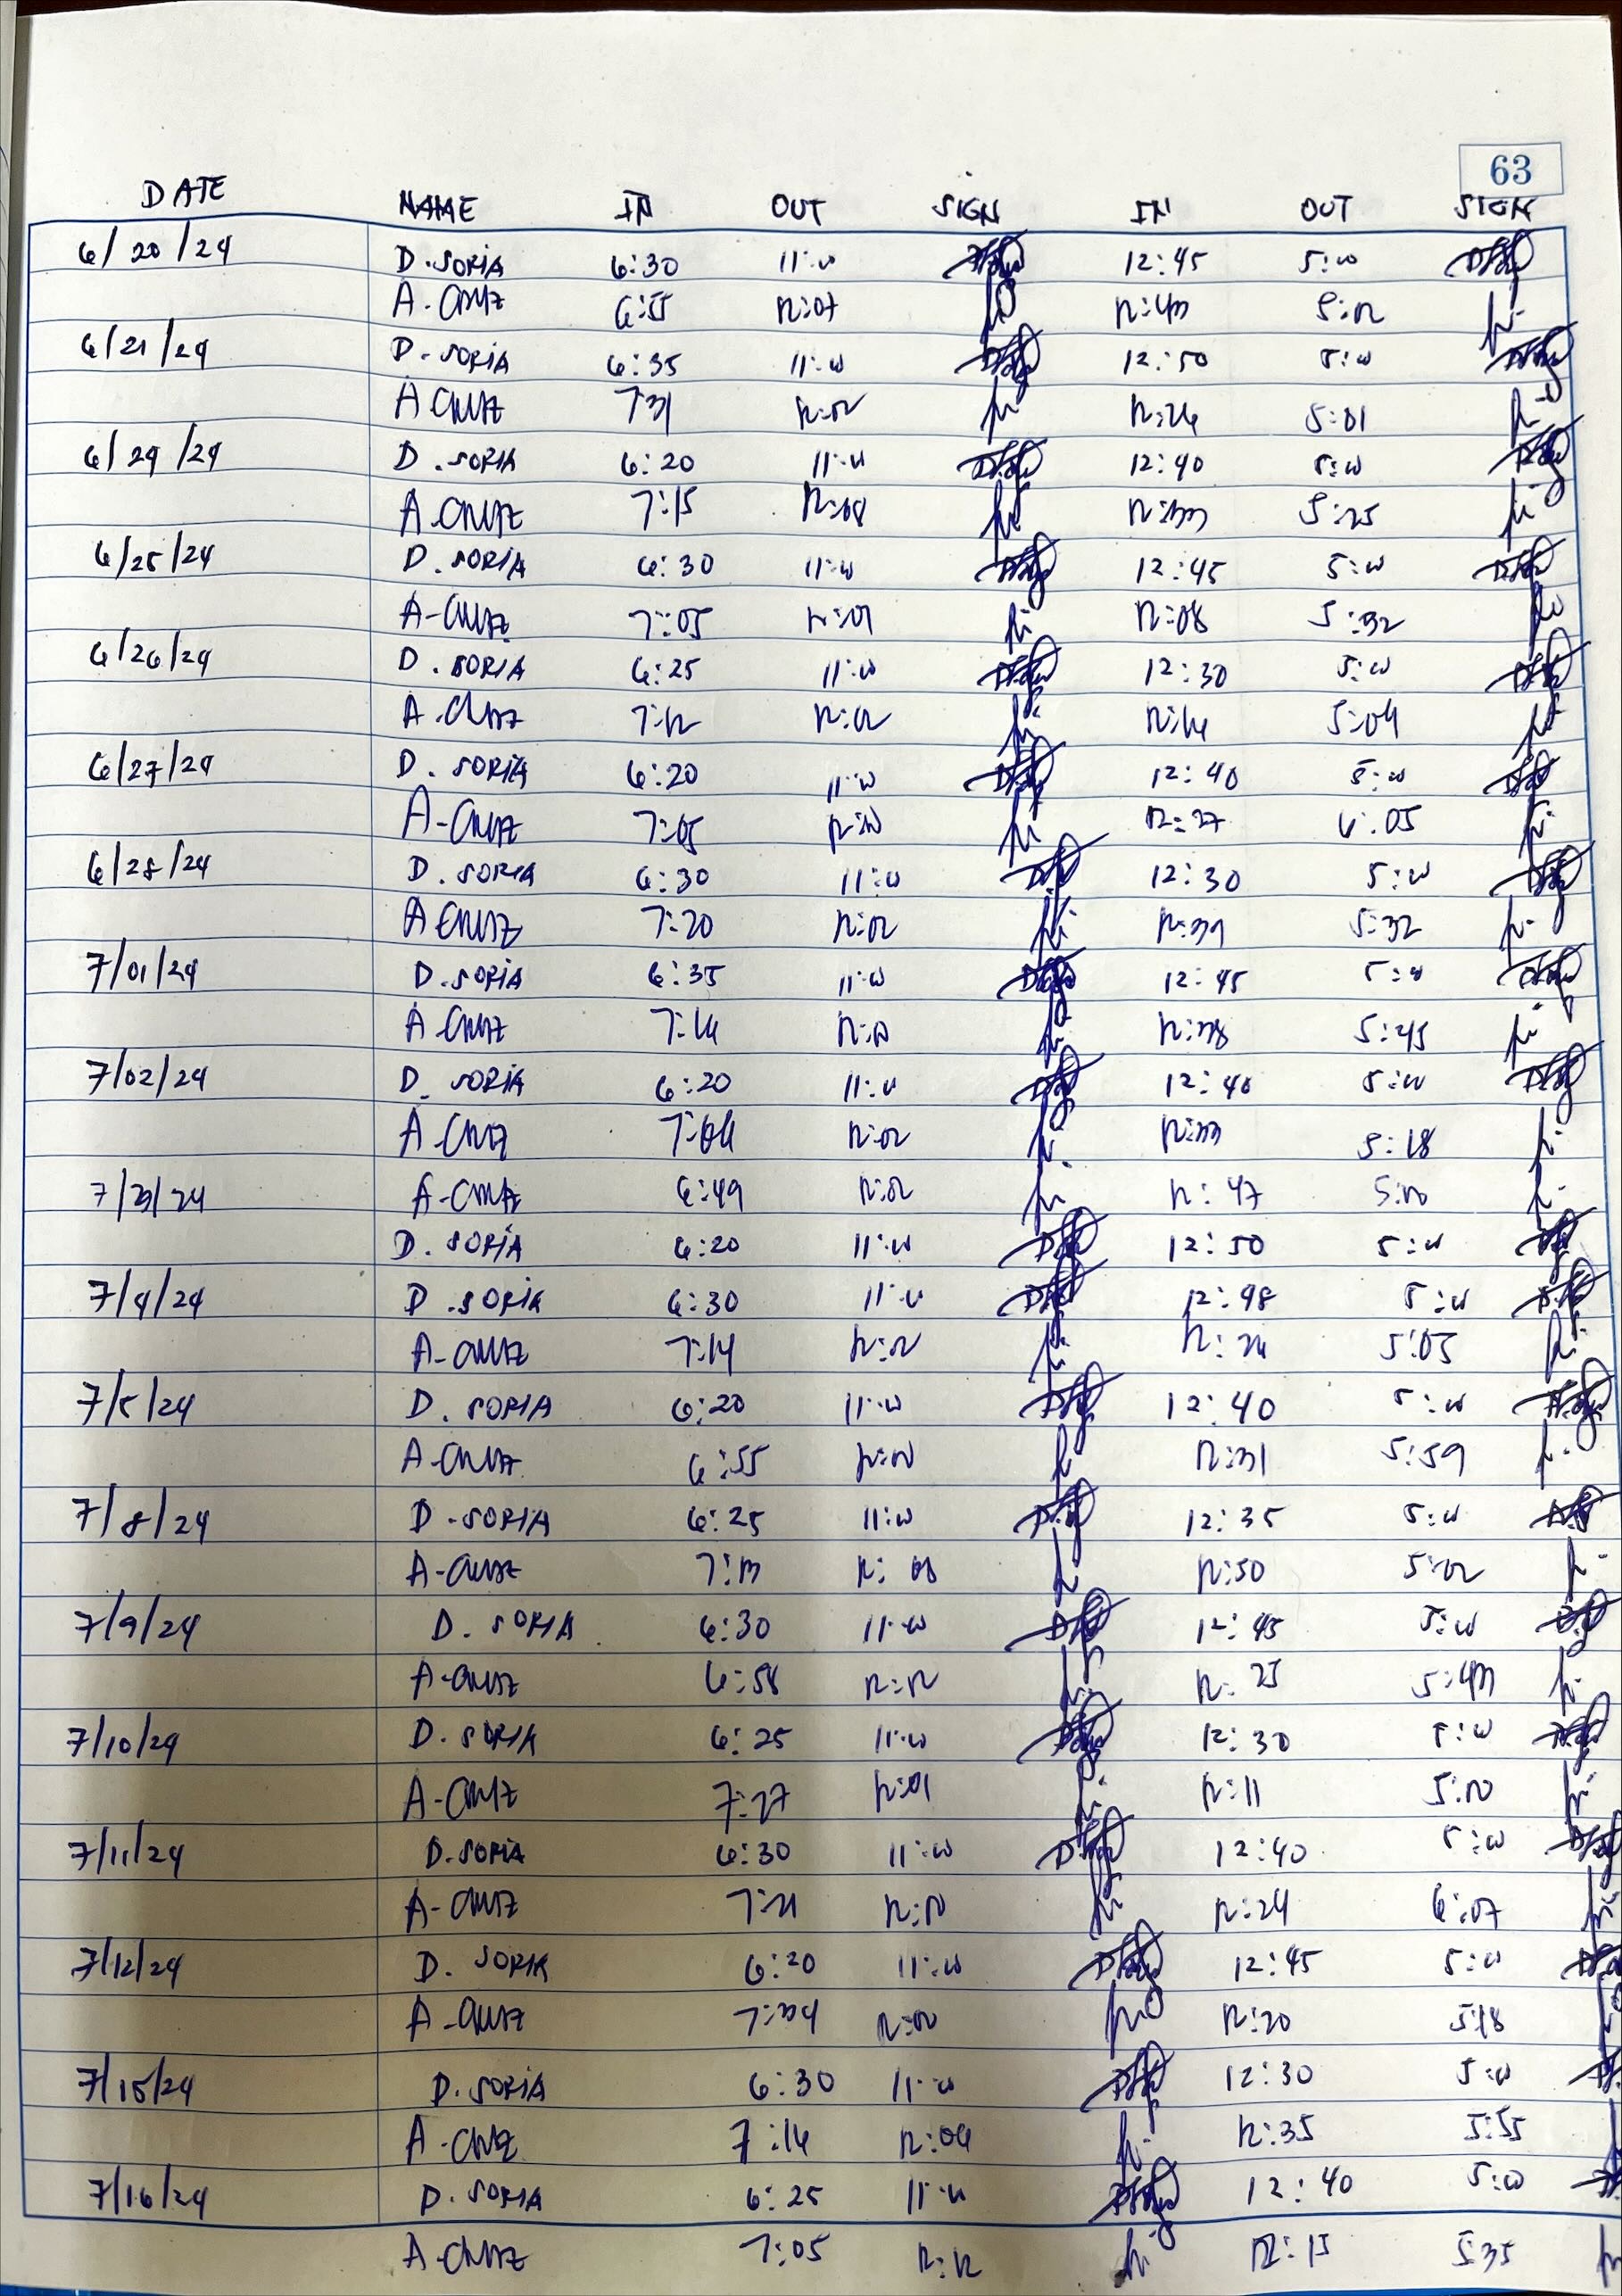 63
DATE NAME IN OUT SIGN IN OUT SIGN
6/20/24 D. SORIA 6:30 11:00 12:45 5:00
A. CRUZ
6/21/24 D. SORIA 6:35 11:00 12:50 5:00
A CRUZ 7:31 12:02 12:26 5:01
6/24/24 D. SORIA 6:20 11:00 12:40 5:00
A. CRUZ 7:15 12:08 5:25
6/25/24 D. SORIA 6:30 11:00 12:45 5:00
A-CRUZ 7:05 12:01 12:08 5:32
6/26/24 D. SORIA 6:25 11:00 12:30 5:00
A. CRUZ 7:12 12:02 5:04
6/27/24 D. SORIA 6:20 11:00 12:40 5:00
A-CRUZ 7:05 12:27 6:05
6/28/24 D. SORIA 6:30 11:00 12:30 5:00
A CRUZ 7:20 12:02 12:39 5:32
7/01/24 D. SORIA 6:35 11:00 12:45 5:00
A CRUZ 7:16 12:38 5:45
7/02/24 D. SORIA 6:20 11:00 12:40 5:00
A-CRUZ 12:02 5:18
7/3/24 A-CRUZ 6:49 12:02 12:47
D. SORIA 6:20 11:00 12:50 5:00
7/4/24 D. SORIA 6:30 11:00 12:48 5:00
A-CRUZ 7:14 12:02 5:05
7/5/24 D. SORIA 6:20 11:00 12:40 5:00
A-CRUZ 6:55 12:31 5:59
7/8/24 D. SORIA 6:25 11:00 12:35 5:00
A-CRUZ 7:13 12:50 5:02
7/9/24 D. SORIA 6:30 11:00 12:45 5:00
A-CRUZ 6:58 12:12 12:25 5:43
7/10/24 D. SORIA 6:25 11:00 12:30 5:00
A-CRUZ 7:27 12:01 12:11
7/11/24 D. SORIA 6:30 11:00 12:40 5:00
A-CRUZ 7:21 12:24 6:07
7/12/24 D. SORIA 6:20 11:00 12:45 5:00
A-CRUZ 7:34 12:20 5:18
7/15/24 D. SORIA 6:30 11:00 12:30 5:00
A-CRUZ 7:16 12:06 12:35 5:55
7/16/24 D. SORIA 6:25 11:00 12:40 5:00
A-CRUZ 7:05 12:12 12:15 5:35